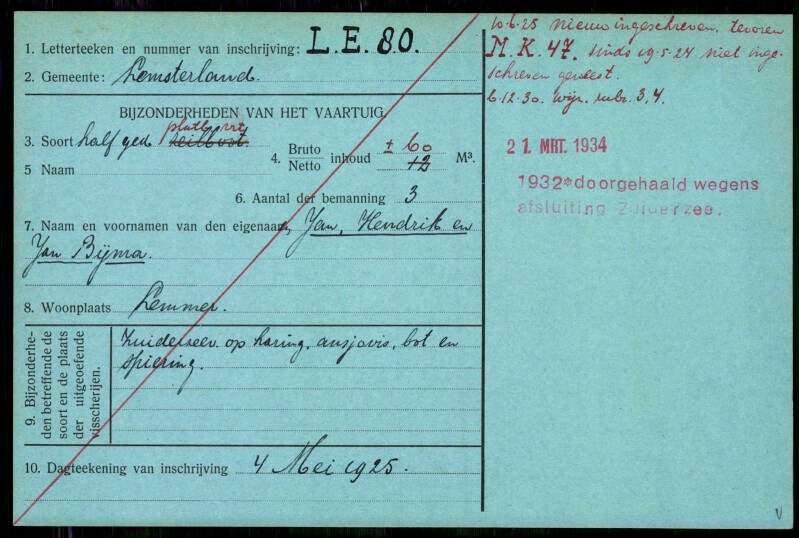 1. Letterteeken en nummer van inschrijving: L.E. 80.
2. Gemeente: Lemsterland.
BIJZONDERHEDEN VAN HET VAARTUIG.
3. Soort half ged.
4. Bruto ± 60
Netto inhoud 12 M³.
5 Naam
6. Aantal der bemanning 3
7. Naam en voornamen van den eigenaar, Jan, Hendrik en
Jan Bijma.
8. Woonplaats Lemmer.
9. Bijzonderhe-
den betreffende de
soort en de plaats
der uitgeoefende
visscherijen.
Zuiderzee op haring, ansjovis, bot en
spiering.
10. Dagteekening van inschrijving 4 Mei 1925.
10-6-25 nieuw ingeschreven, tevoren
M.K. 47. sinds 19-5-24 niet inge-
schreven geweest.
6.12.30. wijz. rubr. 3, 4.
21. MRT. 1934
1932 doorgehaald wegens
afsluiting Zuiderzee.